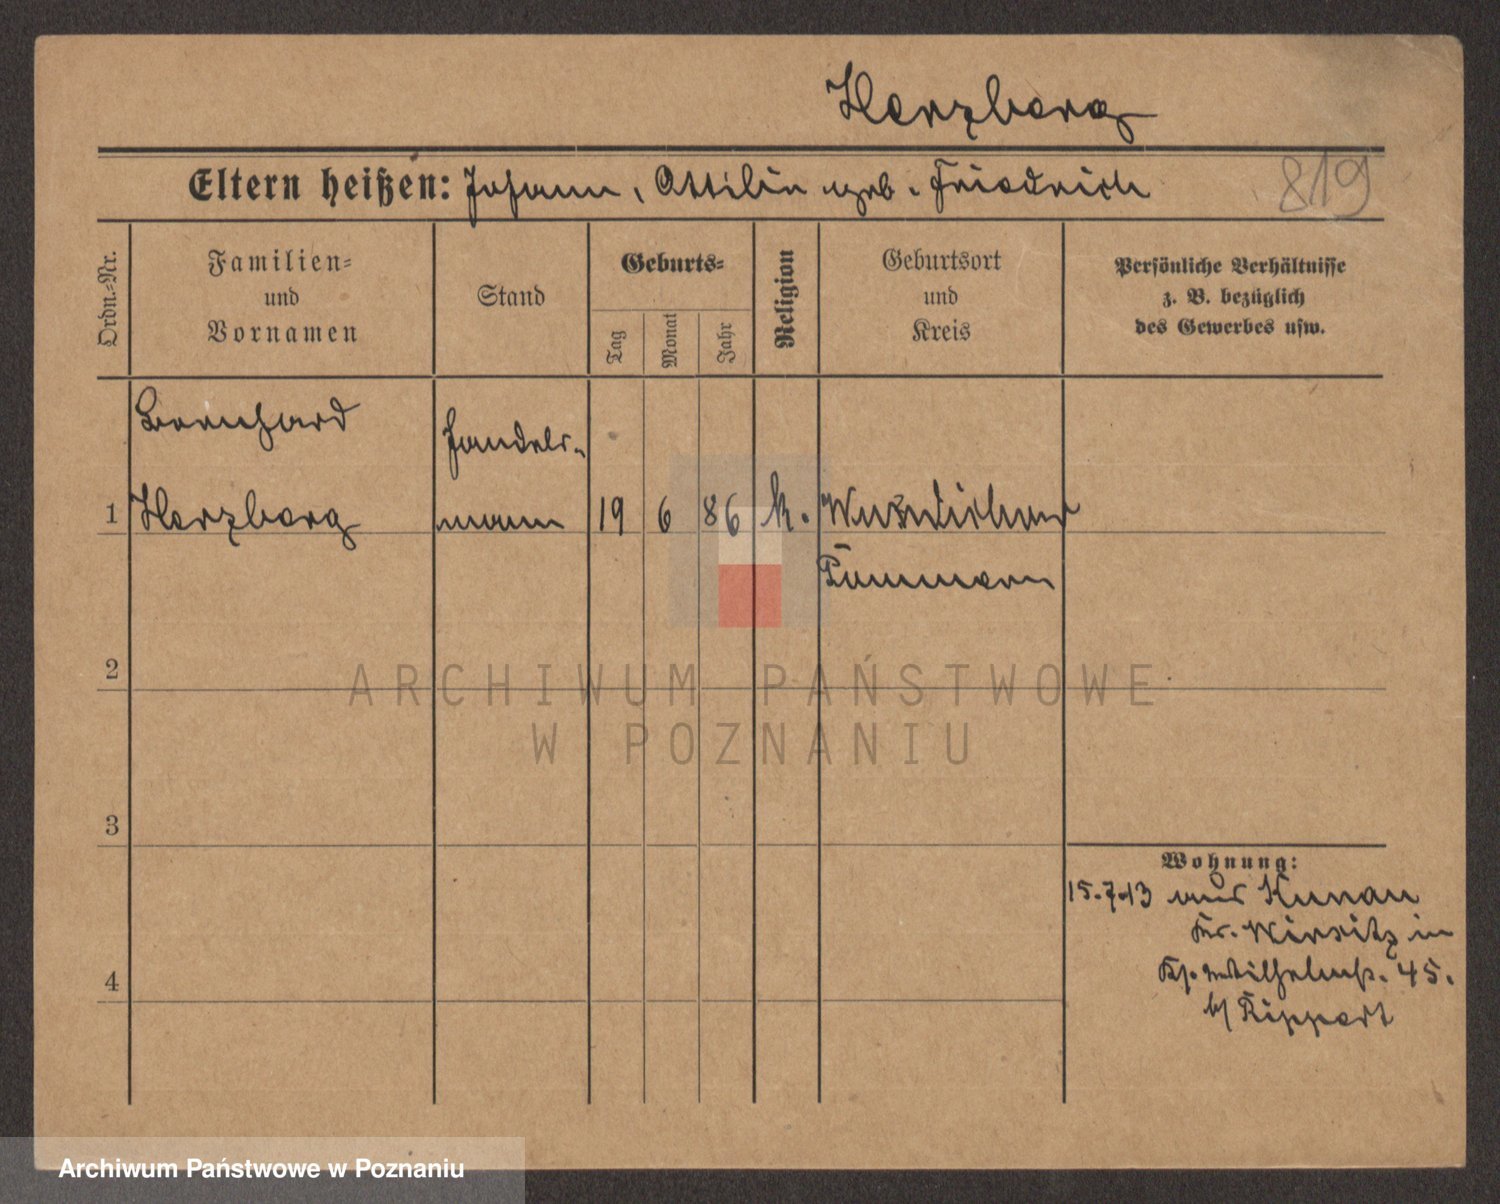 Herzberg
Eltern heißen: Johann, Ottilie geb. Friedrich
819
Ordn.-Nr.
Familien-
und
Vornamen
Stand
Geburts-
Tag
Monat
Jahr
Religion
Geburtsort
und
Kreis
Persönliche Verhältnisse
z. B. bezüglich
des Gewerbes usw.
Bernhard
Handels-
1 Herzberg mann 19 6 86 k.
Pommern
2
ARCHIWUM PAŃSTWOWE
W POZNANIU
3
Wohnung:
15.7.13 aus Kunau
Kr. Wirsitz in
45.
Rippert
4
Archiwum Państwowe w Poznaniu